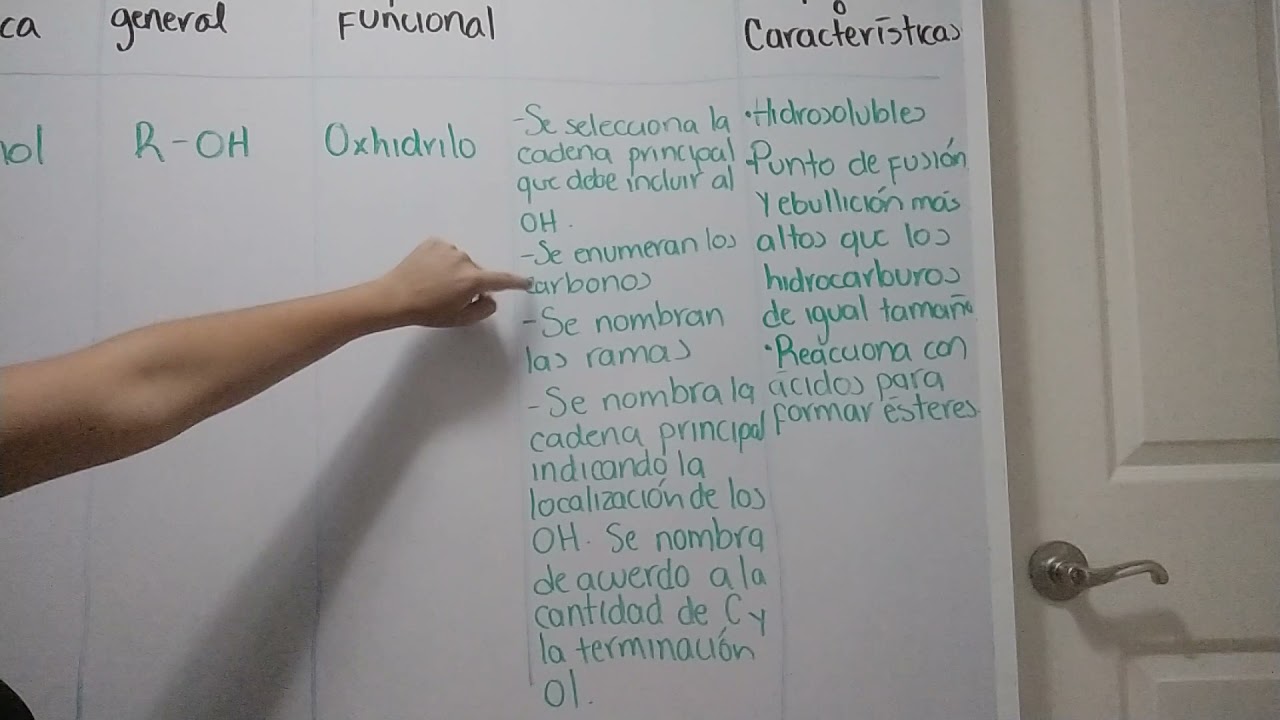 ca
general
Funcional
o
Características
nol
R-OH
Oxhidrilo
-Se selecciona la
cadena principal
que debe incluir al
OH.
-Se enumeran los
carbonos
-Se nombran
las ramas
-Se nombra la
cadena principal
indicando la
localización de los
OH. Se nombra
de acuerdo a la
cantidad de C y
la terminación
Ol.
•Hidrosolubles
•Punto de fusión
y ebullición más
altos que los
hidrocarburos
de igual tamaño
•Reacciona con
ácidos para
formar ésteres